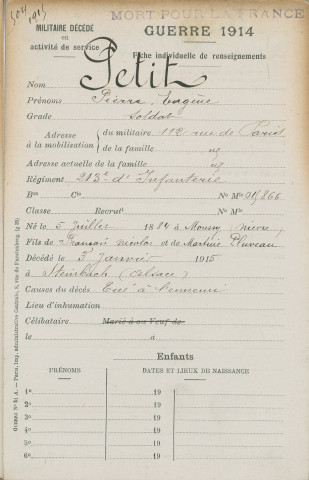 MORT POUR LA FRANCE
MILITAIRE DÉCÉDÉ
en
activité de service
GUERRE 1914
Fiche individuelle de renseignements
Nom Petit
Prénoms Pierre, Eugène
Grade Soldat
Adresse à la mobilisation du militaire 112 rue de Paris
de la famille
Adresse actuelle de la famille
Régiment 213e d'Infanterie
Bon Cie No Mle
Classe Recrut No Mle
Né le 5 Juillet 1884 à Moussy (Nièvre)
Fils de François Nicolas et de Martine Pluveau
Décédé le 3 Janvier 1915
à Steinbach (Alsace)
Causes du décès Tué à l'ennemi
Lieu d'inhumation
Célibataire Marié à ou Veuf de
le à
Enfants
PRÉNOMS DATES ET LIEUX DE NAISSANCE
1o 19
2o 19
3o 19
4o 19
5o 19
6o 19